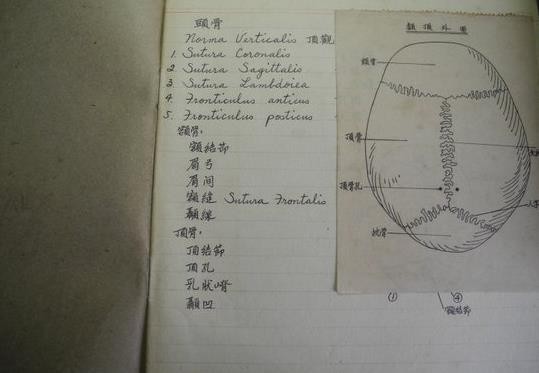 頭骨
Norma Verticalis 頂觀
1. Sutura Coronalis
2. Sutura Sagittalis
3. Sutura Lambdoiea
4. Fronticulus anticus
5. Fronticulus posticus
額骨:
額結節
眉弓
眉间
額縫 Sutura Frontalis
顳線
頂骨:
頂結節
頂孔
乳狀嵴
顳凹
顱頂外面
額骨
頂骨
頂骨孔
枕骨
① ④
額結節